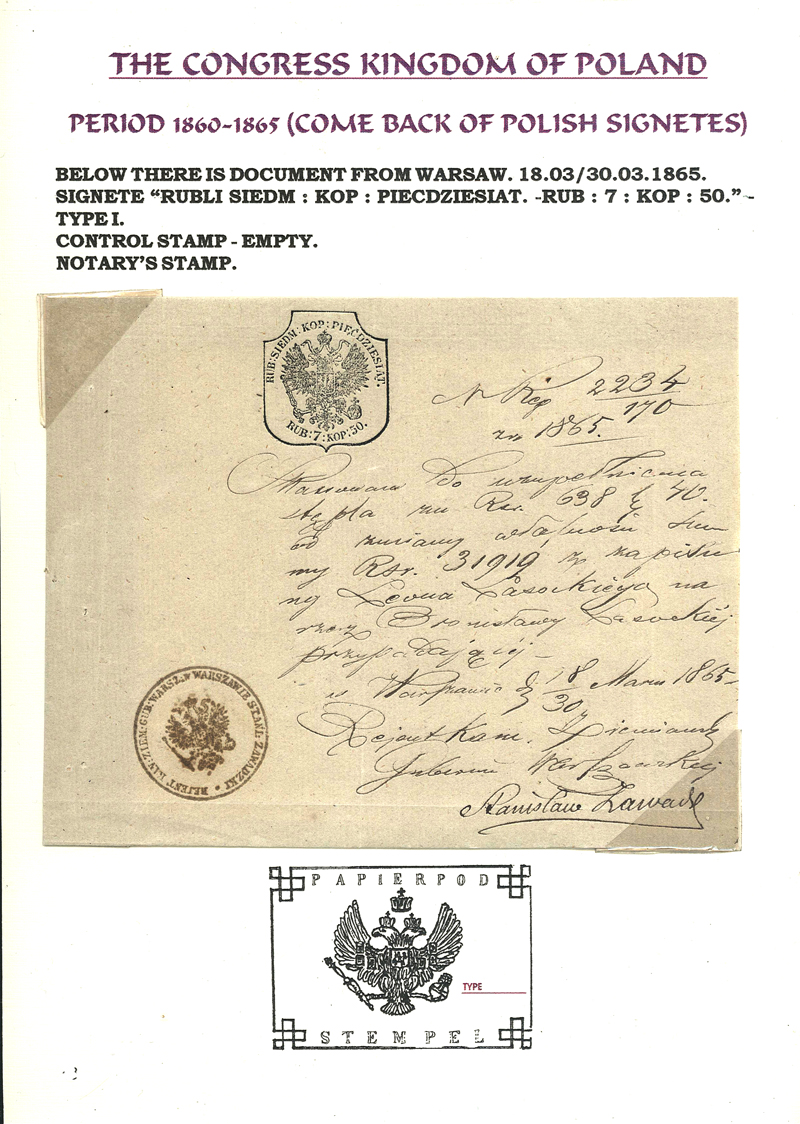 THE CONGRESS KINGDOM OF POLAND
PERIOD 1860-1865 (COME BACK OF POLISH SIGNETES)
BELOW THERE IS DOCUMENT FROM WARSAW. 18.03/30.03.1865.
SIGNETE “RUBLI SIEDM : KOP : PIECDZIESIAT. -RUB : 7 : KOP : 50.”-
TYPE I.
CONTROL STAMP - EMPTY.
NOTARY'S STAMP.
RUB: SIEDM: KOP: PIĘCDZIESIAT.
RUB: 7: KOP: 50.
N Rep 2234/170
za 1865.
do
stępla Rsr. 638 40.
od zmiany własności Sum
my Rsr. 31919 z zapisu
Leona Lasockiego na
rzecz Bronisławy Lasockiéj
przypadającéj
w Warszawie d 18/30 Marca 1865
Rejent Kan. Ziemiańs
Gubernii Warszawskiej
Stanisław Zawadz
REJENT KAN: ZIEM: GUB: WARSZ: W WARSZAWIE STANI: ZAWADZKI
PAPIER POD
TYPE
STEMPEL